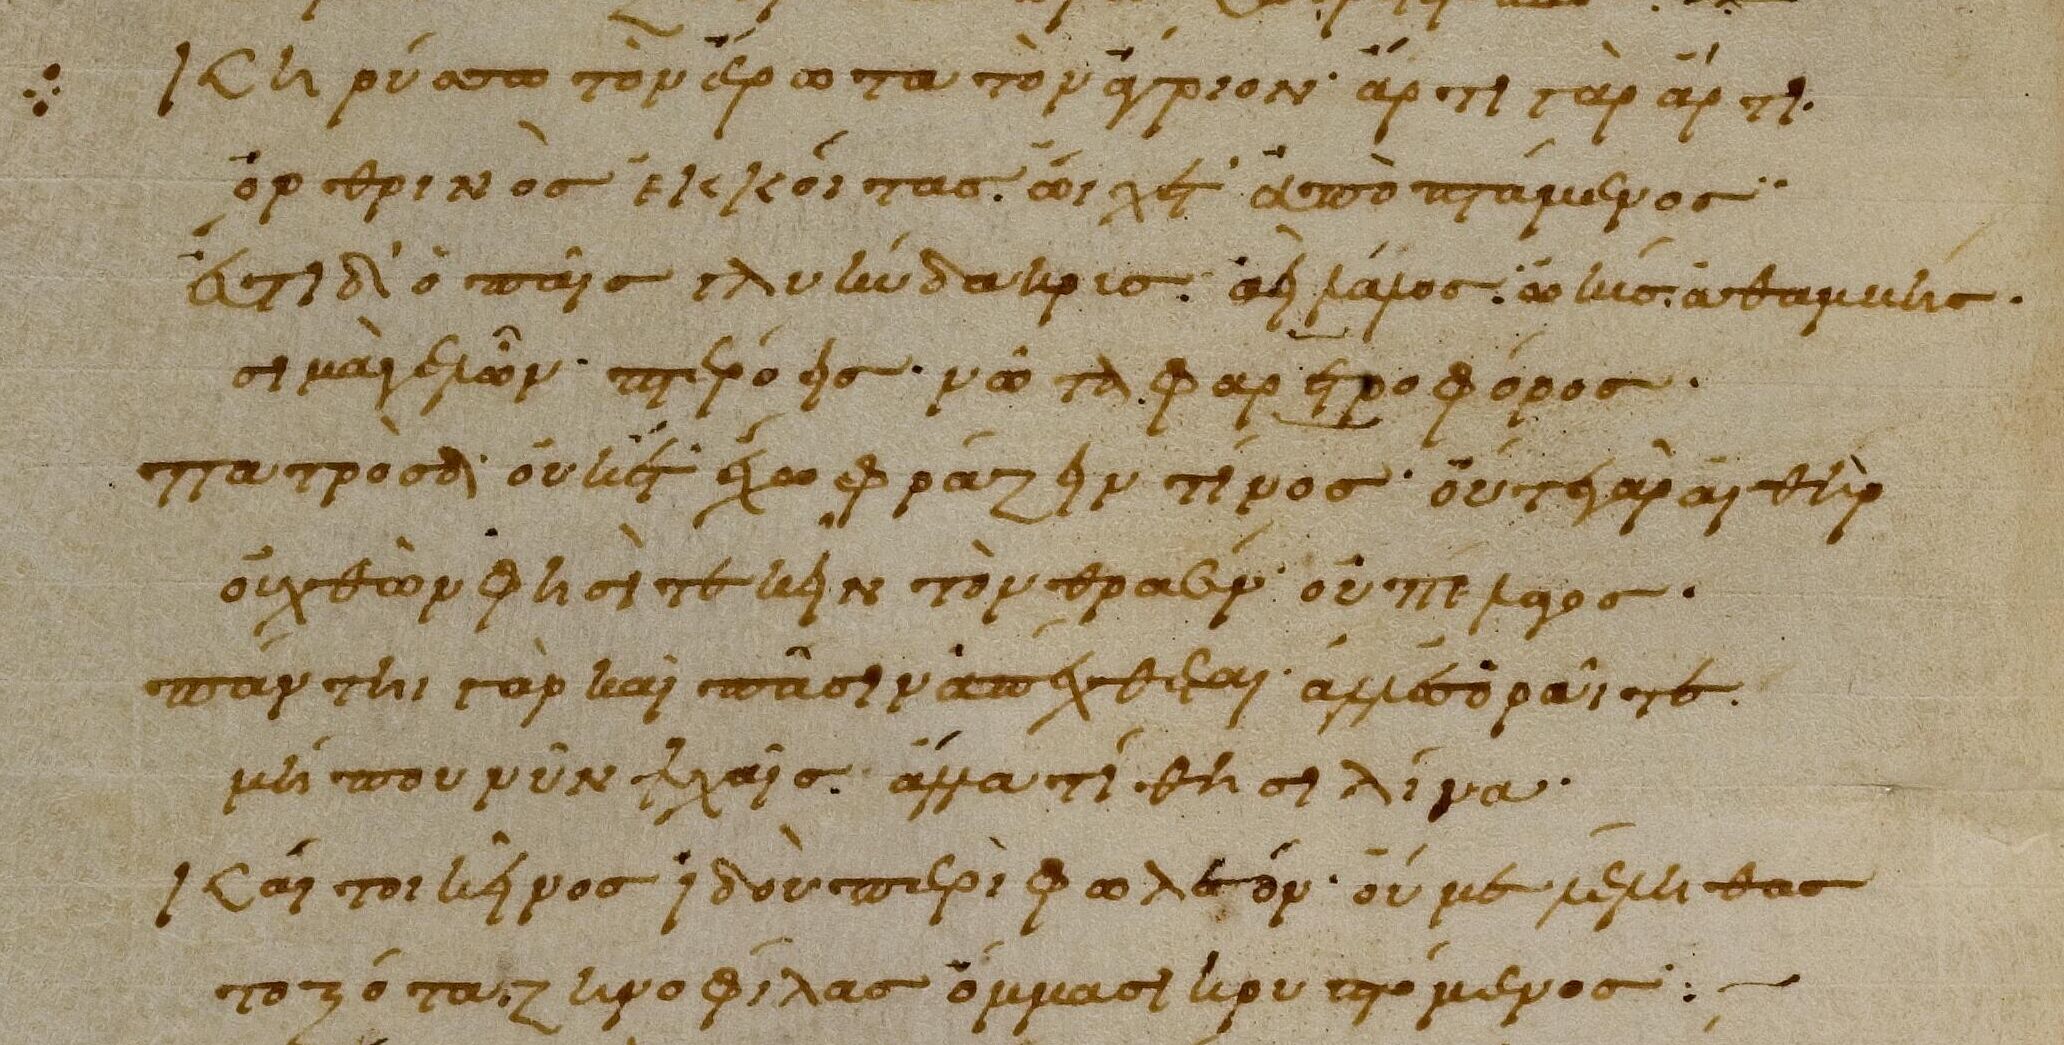 Κηρύσσω τὸν ἔρωτα τὸν ἄγριον· ἄρτι γὰρ ἄρτι·
ὀρθρινὸς ἐκ κοίτας ᾤχετ' ἀποπτάμενος·
ἔστι δ' ὁ παῖς γλυκύδακρυς· ἀείλαλος· ὠκύς· ἀθαμβής·
σιμὰ γελῶν· πτερόεις· νῶτα φαρετροφόρος·
πατρὸς δ' οὐκέτ' ἔχω φράζειν τίνος· οὔτε γὰρ αἰθὴρ
οὐ χθών φησι τεκεῖν τὸν θρασύν· οὐ πέλαγος·
πάντηι γὰρ καὶ πᾶσιν ἀπέχθεται· ἀλλ' ἐσορᾶιτε
μή που νῦν ψυχαῖς ἄλλα τίθησι λίνα·
Καίτοι κεῖνος ἰδοὺ περὶ φωλεόν· οὔ με λέληθας
τοξότα ζηνοφίλας ὄμμασι κρυπτόμενος:~